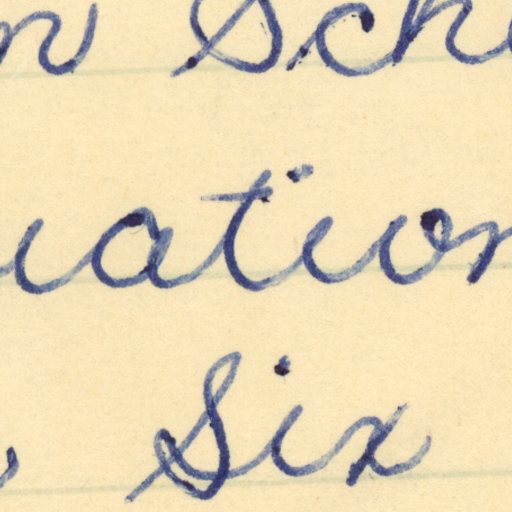 n Sch
uation
s Six